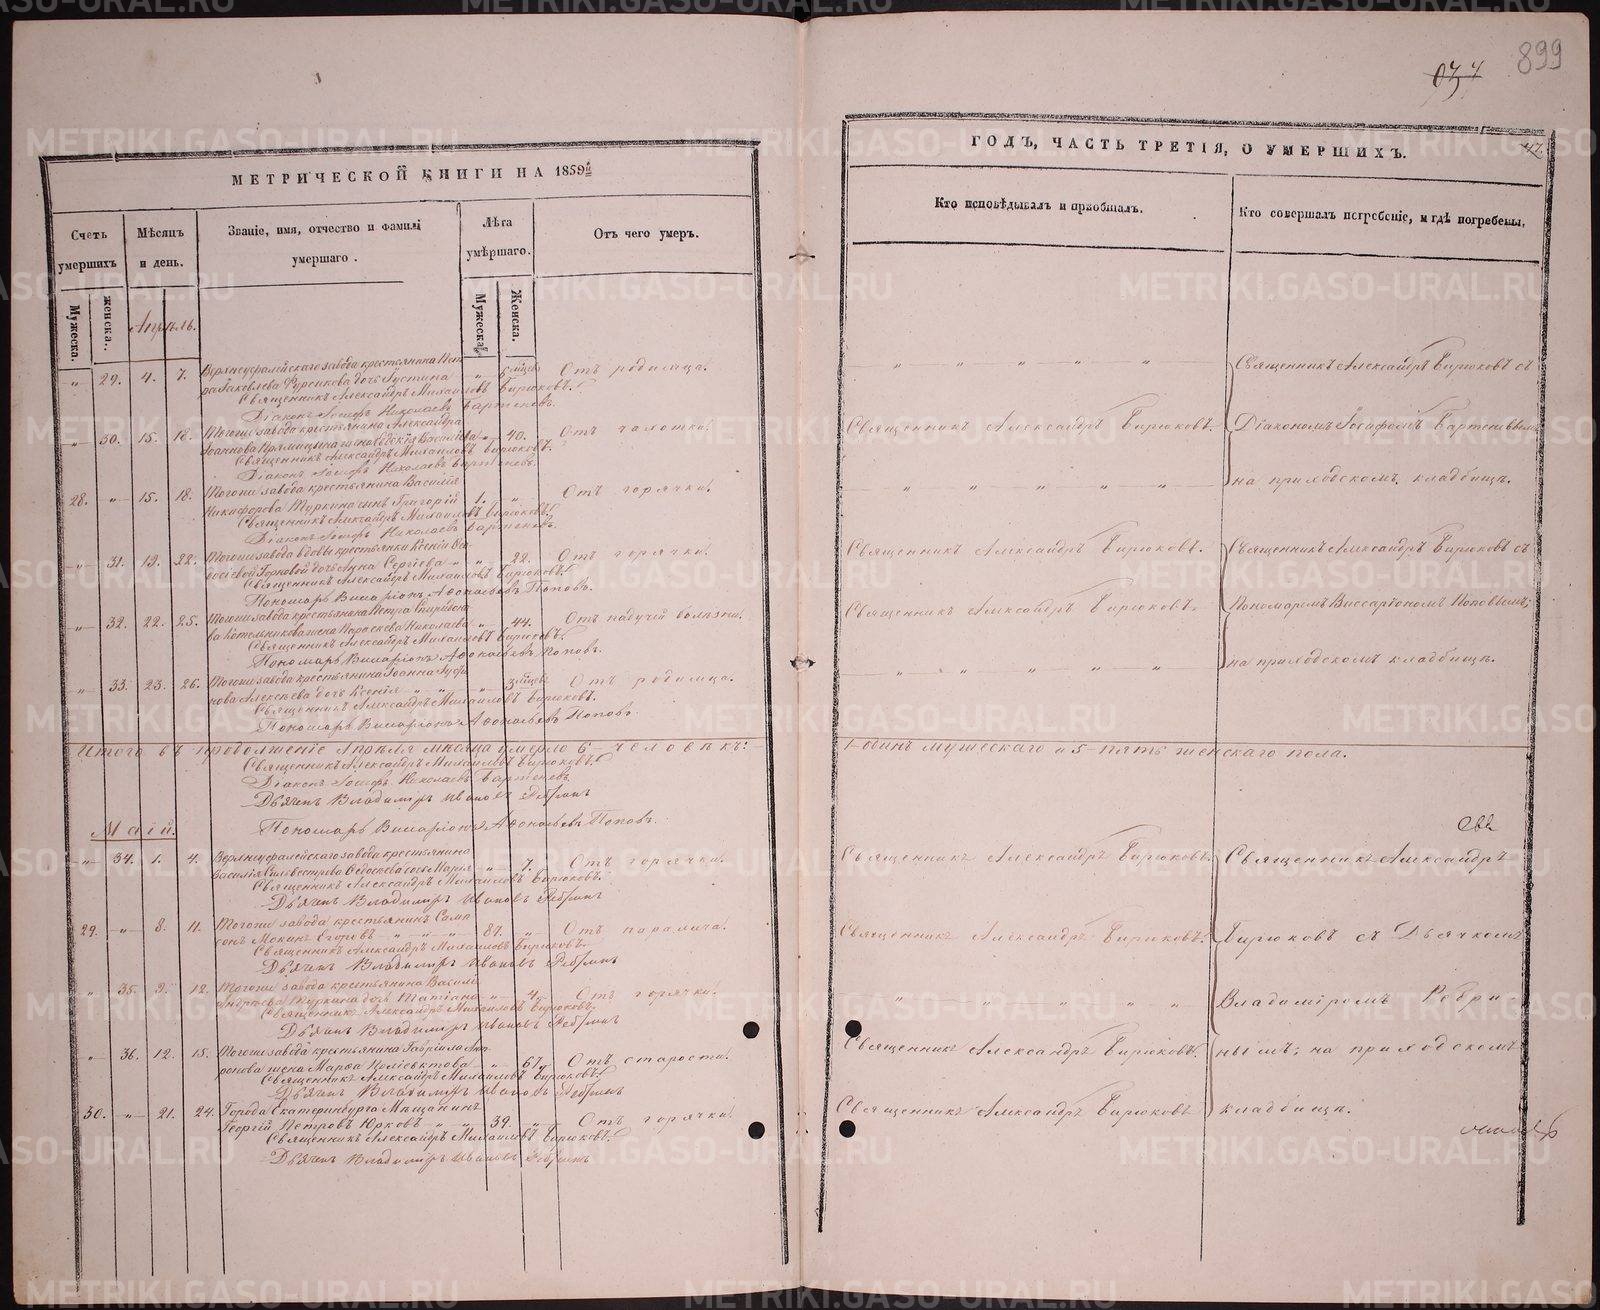 899
МЕТРИЧЕСКОЙ КНИГИ НА 1859й
ГОДЪ, ЧАСТЬ ТРЕТІЯ, О УМЕРШИХЪ.
47.
Счетъ умершихъ
Мѣсяцъ и день.
Званіе, имя, отчество и фамилі умершаго.
Лѣта умѣршаго.
Отъ чего умеръ.
Кто исповѣдывалъ и пріобщалъ.
Кто совершалъ погребеніе, и гдѣ погребены.
Мужеска.
женска.
Мужеска
Женска.
Апрѣль.
" 29. 4. 7. Верхнеуфалейскаго завода крестьянина Пет
ра Яковлева Фурсикова дочь Іустина " 5 мѣся. Отъ родимца.
Священникъ Александръ Михаиловъ Бирюковъ.
Діаконъ Іосифъ Николаевъ Бартеневъ.
Священникъ Александръ Бирюковъ съ
" 30. 15. 18. Тогоже завода крестьянина Александра
Іоаннова жена Василіева " 40. Отъ чахотки.
Священникъ Александръ Михаиловъ Бирюковъ.
Діаконъ Іосифъ Николаевъ Бартеневъ.
Священникъ Александръ Бирюковъ. Діакономъ Іосифомъ Бартеневымъ
28. " 15. 18. Тогоже завода крестьянина Василія
Никифорова Туркина сынъ Григорій 1. " Отъ горячки.
Священникъ Александръ Михаиловъ Бирюковъ.
Діаконъ Іосифъ Николаевъ Бартеневъ.
на приходскомъ кладбищѣ.
" 31. 19. 22. Тогоже завода вдовы крестьянки Ксеніи Ѳе
досіевой Горновой дочь Анна Сергіева " 22. Отъ горячки.
Священникъ Александръ Михаиловъ Бирюковъ.
Пономарь Виссаріонъ Аѳонасьевъ Поповъ.
Священникъ Александръ Бирюковъ. Священникъ Александръ Бирюковъ съ
" 32. 22. 25. Тогоже завода крестьянина Петра Спиридоно
ва Котельникова жена Параскева Николаева " 44. Отъ падучей болѣзни.
Священникъ Александръ Михаиловъ Бирюковъ.
Пономарь Виссаріонъ Аѳонасьевъ Поповъ.
Священникъ Александръ Бирюковъ. Пономаремъ Виссаріономъ Поповымъ;
" 33. 23. 26. Тогоже завода крестьянина Іоанна
Алексѣева дочь Ксенія " 3 мѣсяцевъ Отъ родимца.
Священникъ Александръ Михаиловъ Бирюковъ.
Пономарь Виссаріонъ Аѳонасьевъ Поповъ.
на приходскомъ кладбищѣ.
Итого въ продолженіе Апрѣля мѣсяца умерло 6 человѣкъ: 1-одинъ мужескаго и 5-пять женскаго пола.
Священникъ Александръ Михаиловъ Бирюковъ.
Діаконъ Іосифъ Николаевъ Бартеневъ
Дьячекъ Владиміръ Ивановъ Ребринъ
Пономарь Виссаріонъ Аѳонасьевъ Поповъ.
Маій.
" 34. 1. 4. Верхнеуфалейскаго завода крестьянина
Василія Сильвестрова Ѳедосѣева Марья " 7. Отъ горячки.
Священникъ Александръ Михаиловъ Бирюковъ.
Дьячекъ Владиміръ Ивановъ Ребринъ
Священникъ Александръ Бирюковъ. Священникъ Александръ
29. " 8. 11. Тогоже завода крестьянинъ Самп
сонъ Мокинъ Егоровъ 87. " Отъ паралича.
Священникъ Александръ Михаиловъ Бирюковъ.
Дьячекъ Владиміръ Ивановъ Ребринъ
Священникъ Александръ Бирюковъ. Бирюковъ съ Дьячкомъ
" 35. 9. 12. Тогоже завода крестьянина Васил
Андреева Туркина дочь Татіана " 4. Отъ горячки.
Священникъ Александръ Михаиловъ Бирюковъ.
Дьячекъ Владиміръ Ивановъ Ребринъ
Владиміромъ Ребри
" 36. 12. 15. Тогоже завода крестьянина Гавріила Ант
ропова жена Марѳа " 67. Отъ старости.
Священникъ Александръ Михаиловъ Бирюковъ.
Дьячекъ Владиміръ Ивановъ Ребринъ
Священникъ Александръ Бирюковъ. нымъ; на приходскомъ
30. " 21. 24. Города Екатеринбурга Мѣщанинъ
Георгій Петровъ Юрковъ 39. " Отъ горячки.
Священникъ Александръ Михаиловъ Бирюковъ.
Дьячекъ Владиміръ Ивановъ Ребринъ
Священникъ Александръ Бирюковъ кладбищѣ.
METRIKI.GASO-URAL.RU